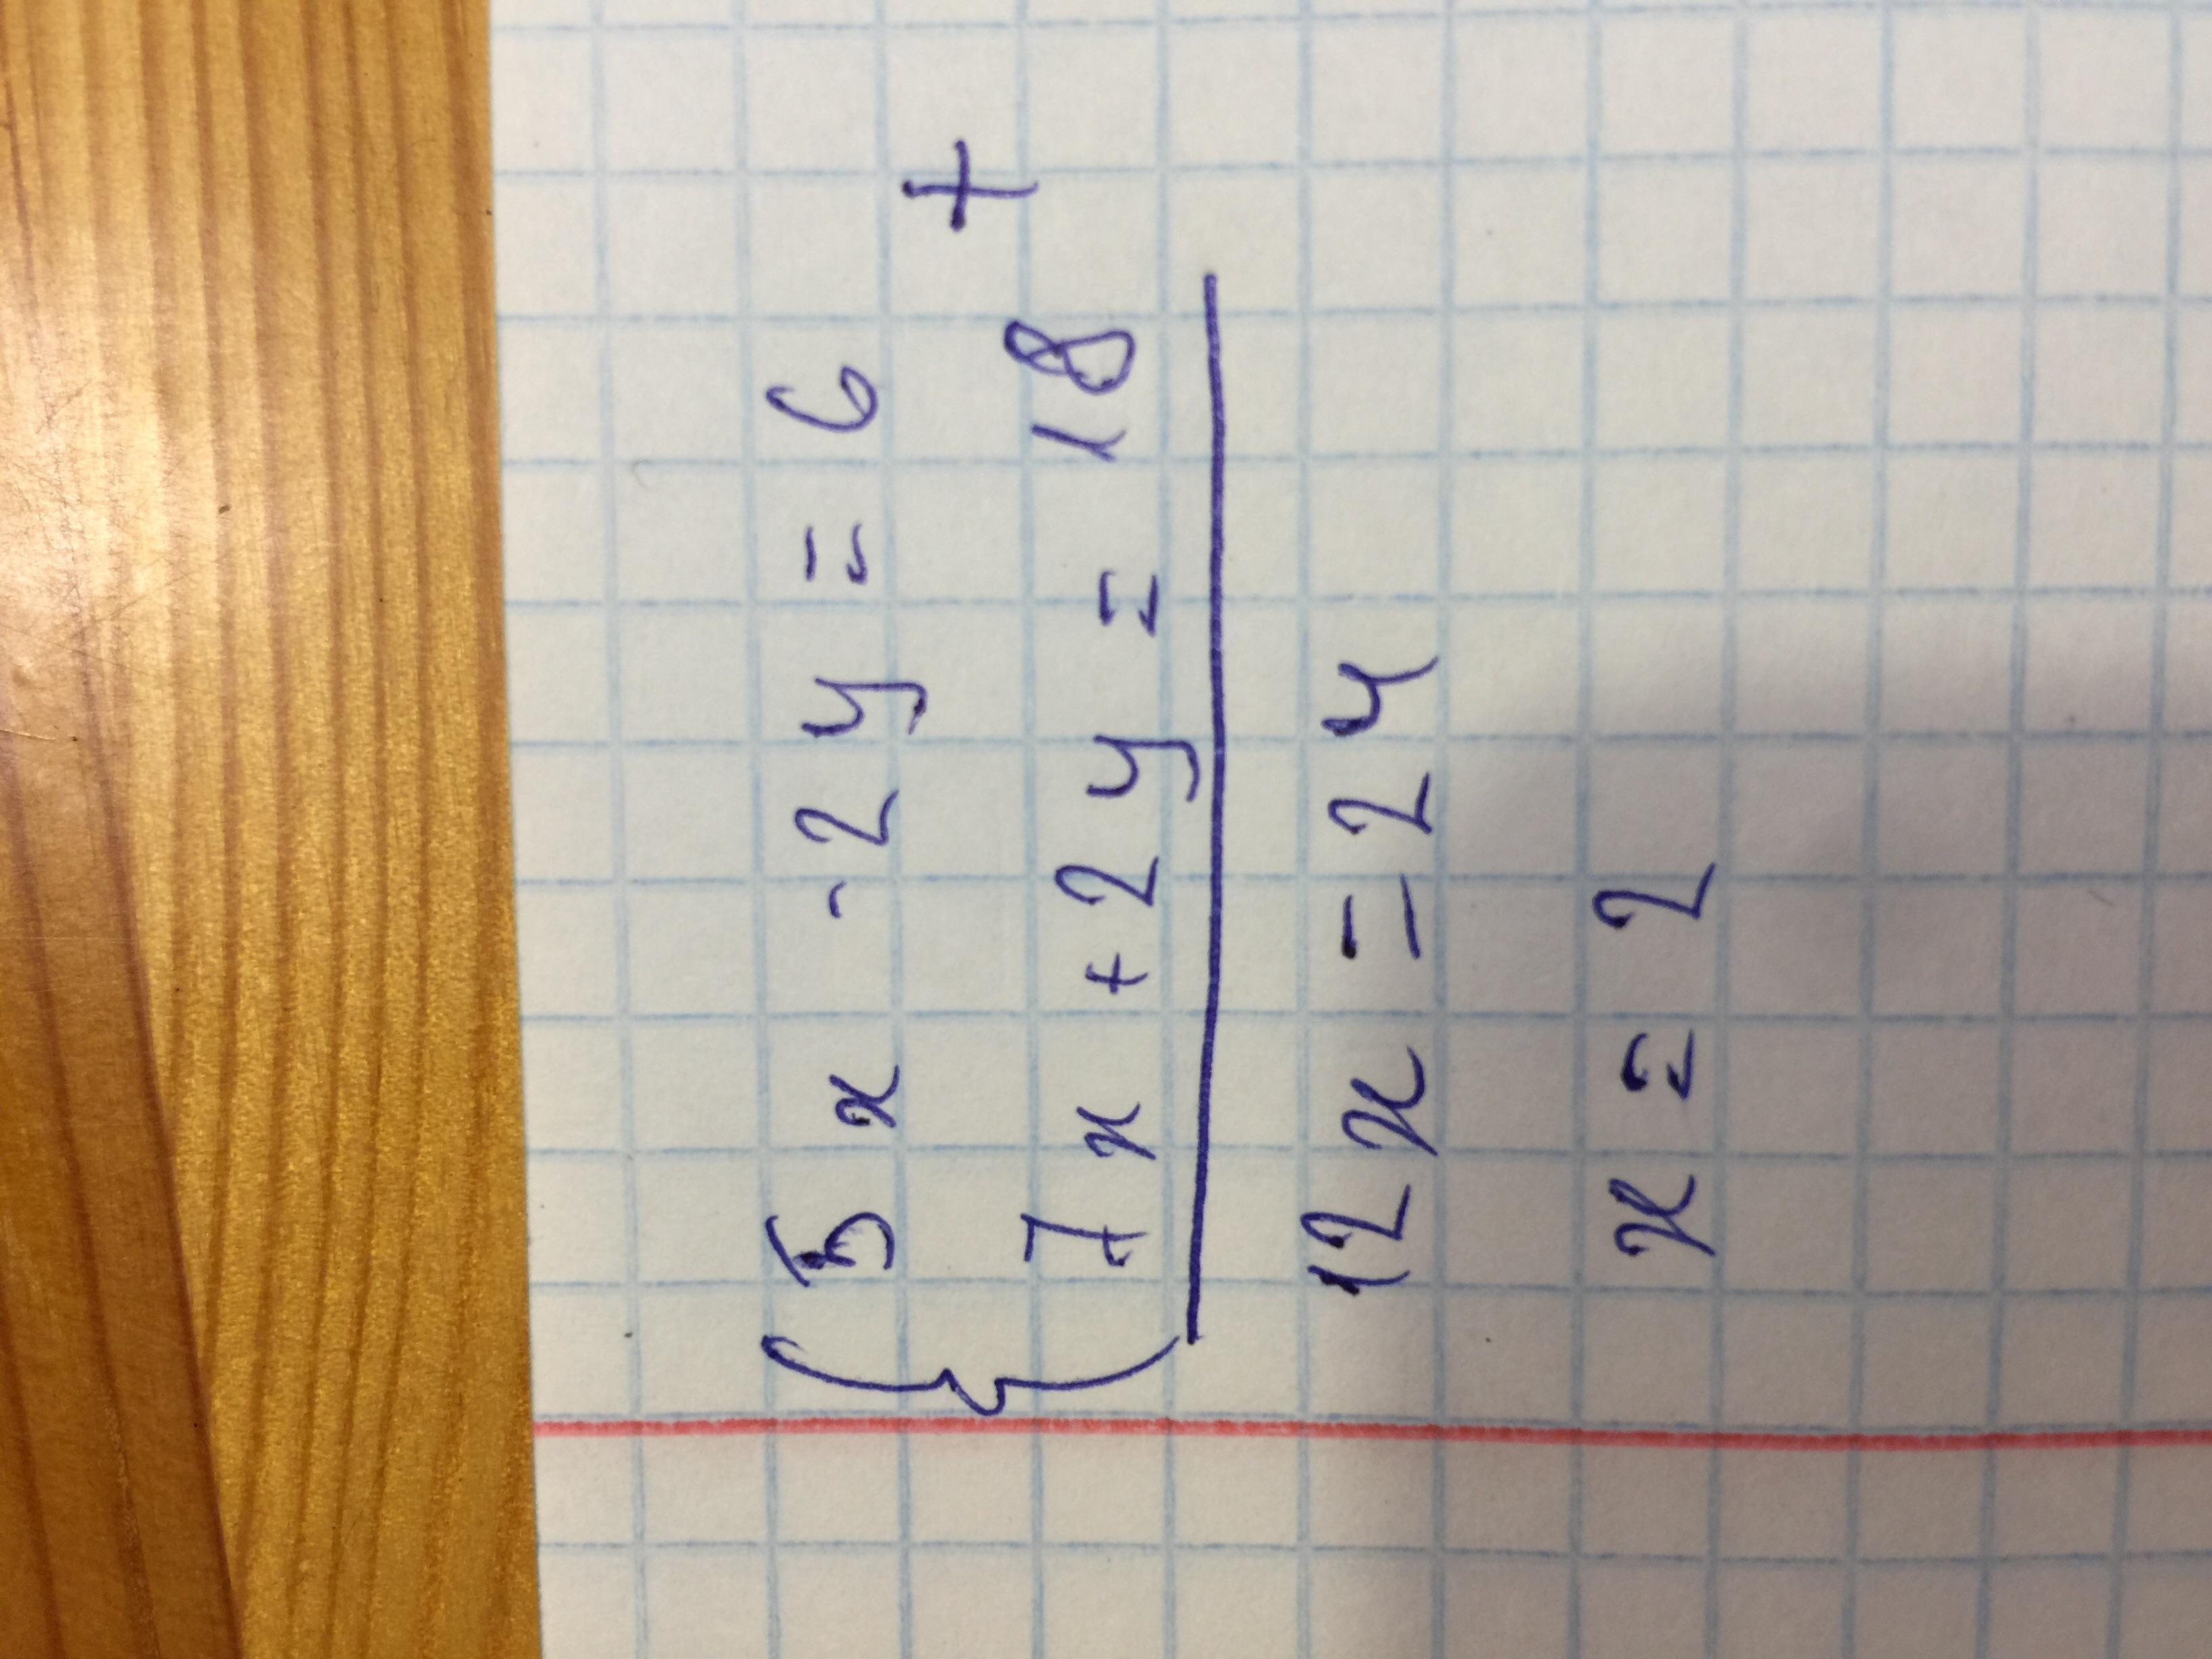 { 5x - 2y = 6
7x + 2y = 18 +
12x = 24
x = 2